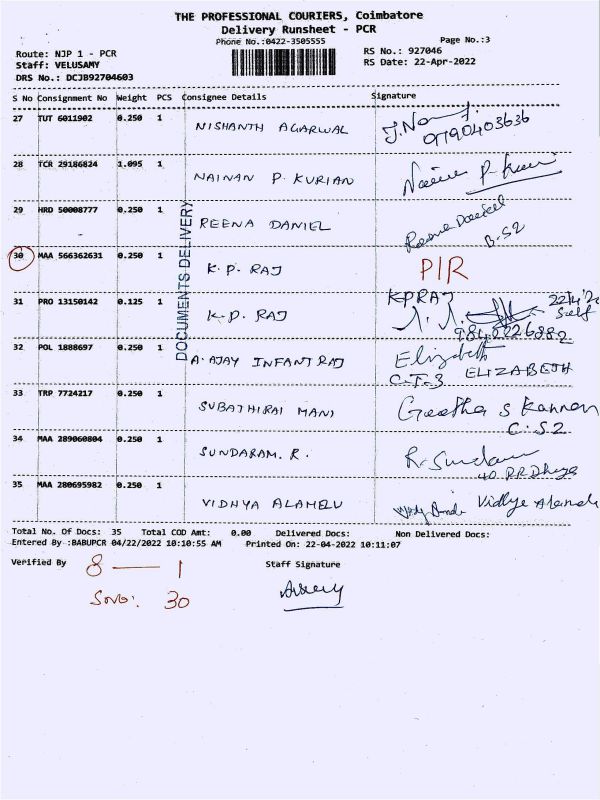 THE PROFESSIONAL COURIERS, Coimbatore
Delivery Runsheet - PCR
Phone No.:0422-3505555
Page No.:3
Route: NJP 1 - PCR
RS No.: 927046
Staff: VELUSAMY
RS Date: 22-Apr-2022
DRS No.: DCJB92704603
S No Consignment No Weight PCS Consignee Details Signature
27 TUT 6011902 0.250 1 NISHANTH AGARWAL
9790403636
28 TCR 29186824 1.095 1 NAINAN P. KURIAN
29 HRD 50008777 0.250 1 REENA DANIEL Reena Daniel
B-S2
30 MAA 566362631 0.250 1 K.P. RAJ PIR
31 PRO 13150142 0.125 1 K.P. RAJ KPRAJ
Self
9842226882
32 POL 1888697 0.250 1 A. AJAY INFANT RAJ Elizabeth
C-T-3 ELIZABETH
33 TRP 7724217 0.250 1 SUBATHIRAI MANI Geetha S Kannan
C.S2
34 MAA 289060804 0.250 1 SUNDARAM. R.
35 MAA 280695982 0.250 1 VIDHYA ALAMELU
DOCUMENTS DELIVERY
Total No. Of Docs: 35 Total COD Amt: 0.00 Delivered Docs: Non Delivered Docs:
Entered By :BABUPCR 04/22/2022 10:10:55 AM Printed On: 22-04-2022 10:11:07
Verified By 8 — 1 Staff Signature
SNO: 30